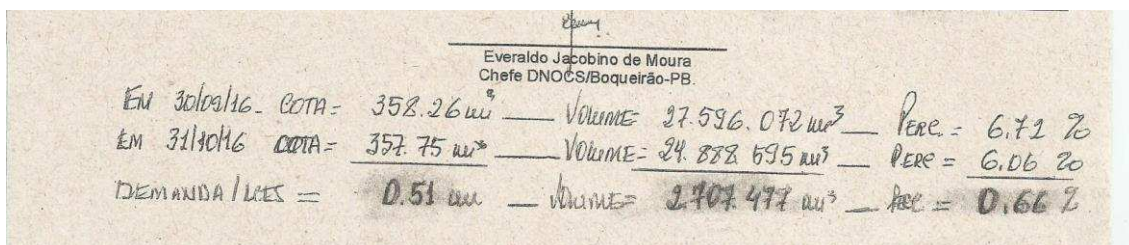 Everaldo Jacobino de Moura
Chefe DNOCS/Boqueirão-PB.
EM 30/09/16_ COTA = 358.26 m³ __ VOLUME= 27.596.072 m³ _ PERC. = 6.72 %
EM 31/10/16 COTA = 357.75 m³ __ VOLUME = 24.888.595 m³ __ PERC = 6.06 %
DEMANDA/MES = 0.51 m __ VOLUME= 2.707.477 m³ __ PERC = 0.66 %